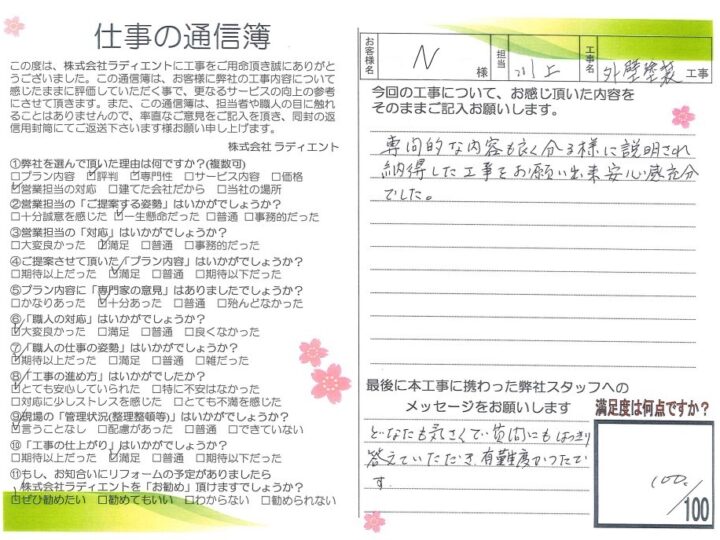 仕事の通信簿
この度は、株式会社ラディエントに工事をご用命頂き誠にありが
とうございました。この通信簿は、お客様に弊社の工事内容について
感じたままに評価していただく事で、更なるサービスの向上の参考
にさせて頂きます。また、この通信簿は、担当者や職人の目に触れ
ることはありませんので、率直なご意見をご記入を頂き、同封の返
信用封筒にてご返送下さいます様お願い申し上げます。
株式会社 ラディエント
①弊社を選んで頂いた理由は何ですか?(複数可)
□プラン内容 ☑評判 ☑専門性 □サービス内容 □価格
☑営業担当の対応 □建てた会社だから □当社の場所
②営業担当の「ご提案する姿勢」はいかがでしょうか?
□十分誠意を感じた ☑一生懸命だった □普通 □事務的だった
③営業担当の「対応」はいかがでしょうか?
□大変良かった ☑満足 □普通 □事務的だった
④ご提案させて頂いた「プラン内容」はいかがでしょうか?
□期待以上だった ☑満足 □普通 □期待以下だった
⑤プラン内容に「専門家の意見」はありましたでしょうか?
□かなりあった ☑十分あった □普通 □殆んどなかった
⑥「職人の対応」はいかがでしょうか?
☑大変良かった □満足 □普通 □良くなかった
⑦「職人の仕事の姿勢」はいかがでしょうか?
☑期待以上だった □満足 □普通 □雑だった
⑧「工事の進め方」はいかがでしたか?
☑とても安心していられた □特に不安はなかった
□対応に少しストレスを感じた □とても不満を感じた
⑨現場の「管理状況(整理整頓等)」はいかがでしょうか?
☑言うことなし □配慮があった □普通 □できていない
⑩「工事の仕上がり」はいかがでしょうか?
□期待以上だった ☑満足 □普通 □期待以下だった
⑪もし、お知合いにリフォームの予定がありましたら
株式会社ラディエントを「お勧め」頂けますでしょうか?
☑ぜひ勧めたい □勧めてもいい □わからない □勧められない
お客様名 N 様 担当 川上 工事名 外壁塗装 工事
今回の工事について、お感じ頂いた内容を
そのままご記入お願いします。
専門的な内容も良く分る様に説明され
納得した工事をお願い出来安心感充分
でした。
最後に本工事に携わった弊社スタッフへの
メッセージをお願いします
どなたも気さくで質問にもはっきり
答えていただき有難度かったで
す
満足度は何点ですか?
100/100